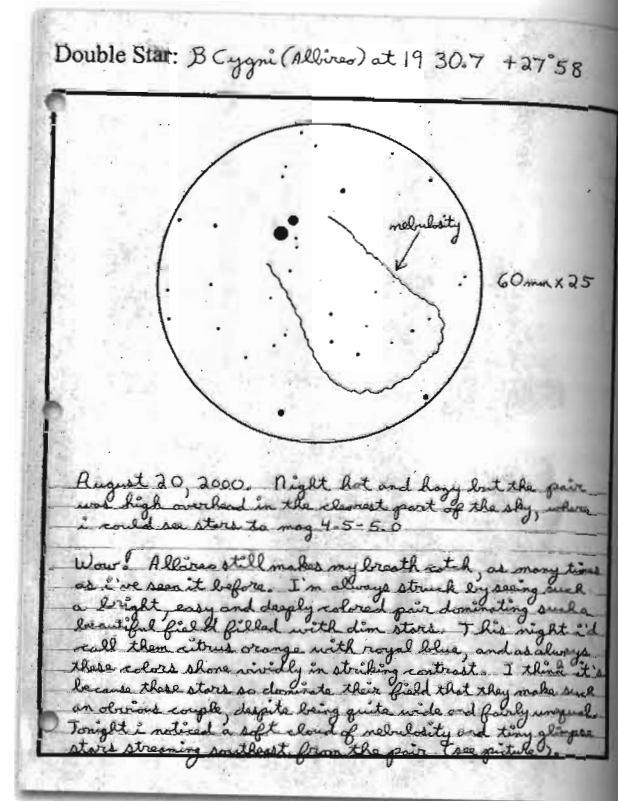 Double Star: B Cygni (Albireo) at 19 30.7 +27°58
nebulosity
60mm x 25
August 20, 2000. Night hot and hazy but the pair
was high overhead in the clearest part of the sky, where
i could see stars to mag 4.5-5.0
Wow! Albireo still makes my breath catch, as many times
as i've seen it before. I'm always struck by seeing such
a bright, easy and deeply colored pair dominating such a
beautiful field filled with dim stars. This night i'd
call them citrus orange with royal blue, and as always
these colors shone vividly in striking contrast. I think it's
because these stars so dominate their field that they make such
an obvious couple, despite being quite wide and fairly unequal.
Tonight i noticed a soft cloud of nebulosity and tiny glimpse
stars streaming southeast from the pair (see picture).